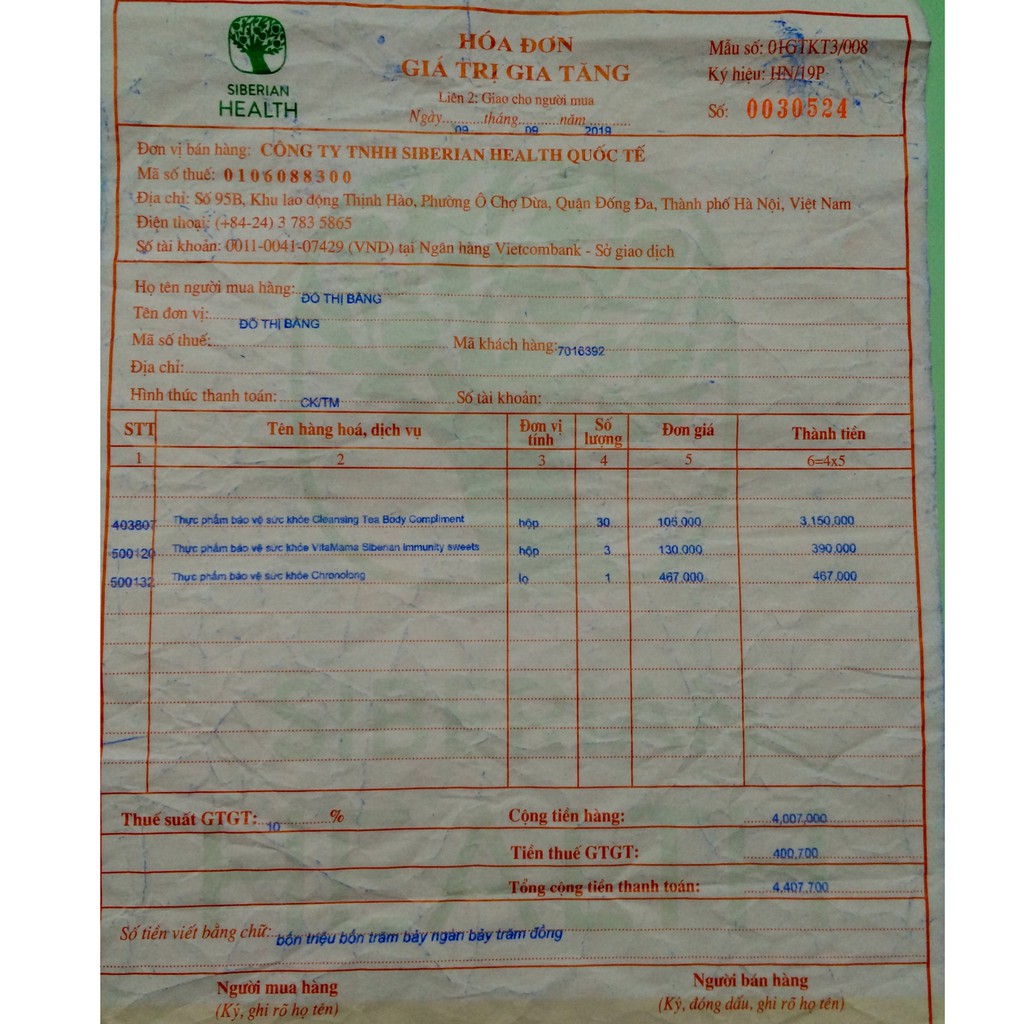 SIBERIAN
HEALTH
HÓA ĐƠN
GIÁ TRỊ GIA TĂNG
Liên 2: Giao cho người mua
Ngày 09 tháng 09 năm 2019
Mẫu số: 01GTKT3/008
Ký hiệu: HN/19P
Số: 0030524
Đơn vị bán hàng: CÔNG TY TNHH SIBERIAN HEALTH QUỐC TẾ
Mã số thuế: 0106088300
Địa chỉ: Số 95B, Khu lao động Thịnh Hào, Phường Ô Chợ Dừa, Quận Đống Đa, Thành phố Hà Nội, Việt Nam
Điện thoại: (+84-24) 3 783 5865
Số tài khoản: 0011-0041-07429 (VND) tại Ngân hàng Vietcombank - Sở giao dịch
Họ tên người mua hàng: ĐỖ THỊ BẰNG
Tên đơn vị: ĐỖ THỊ BẰNG
Mã số thuế: Mã khách hàng: 7016392
Địa chỉ:
Hình thức thanh toán: CK/TM Số tài khoản:
STT Tên hàng hoá, dịch vụ Đơn vị tính Số lượng Đơn giá Thành tiền
1 2 3 4 5 6=4x5
403807 Thực phẩm bảo vệ sức khỏe Cleansing Tea Body Compliment hộp 30 105,000 3,150,000
500120 Thực phẩm bảo vệ sức khỏe VitaMama Siberian immunity sweets hộp 3 130,000 390,000
500132 Thực phẩm bảo vệ sức khỏe Chronolong lo 1 467,000 467,000
Thuế suất GTGT: 10 % Cộng tiền hàng: 4,007,000
Tiền thuế GTGT: 400,700
Tổng cộng tiền thanh toán: 4,407,700
Số tiền viết bằng chữ: bốn triệu bốn trăm bảy ngàn bảy trăm đồng
Người mua hàng Người bán hàng
(Ký, ghi rõ họ tên) (Ký, đóng dấu, ghi rõ họ tên)